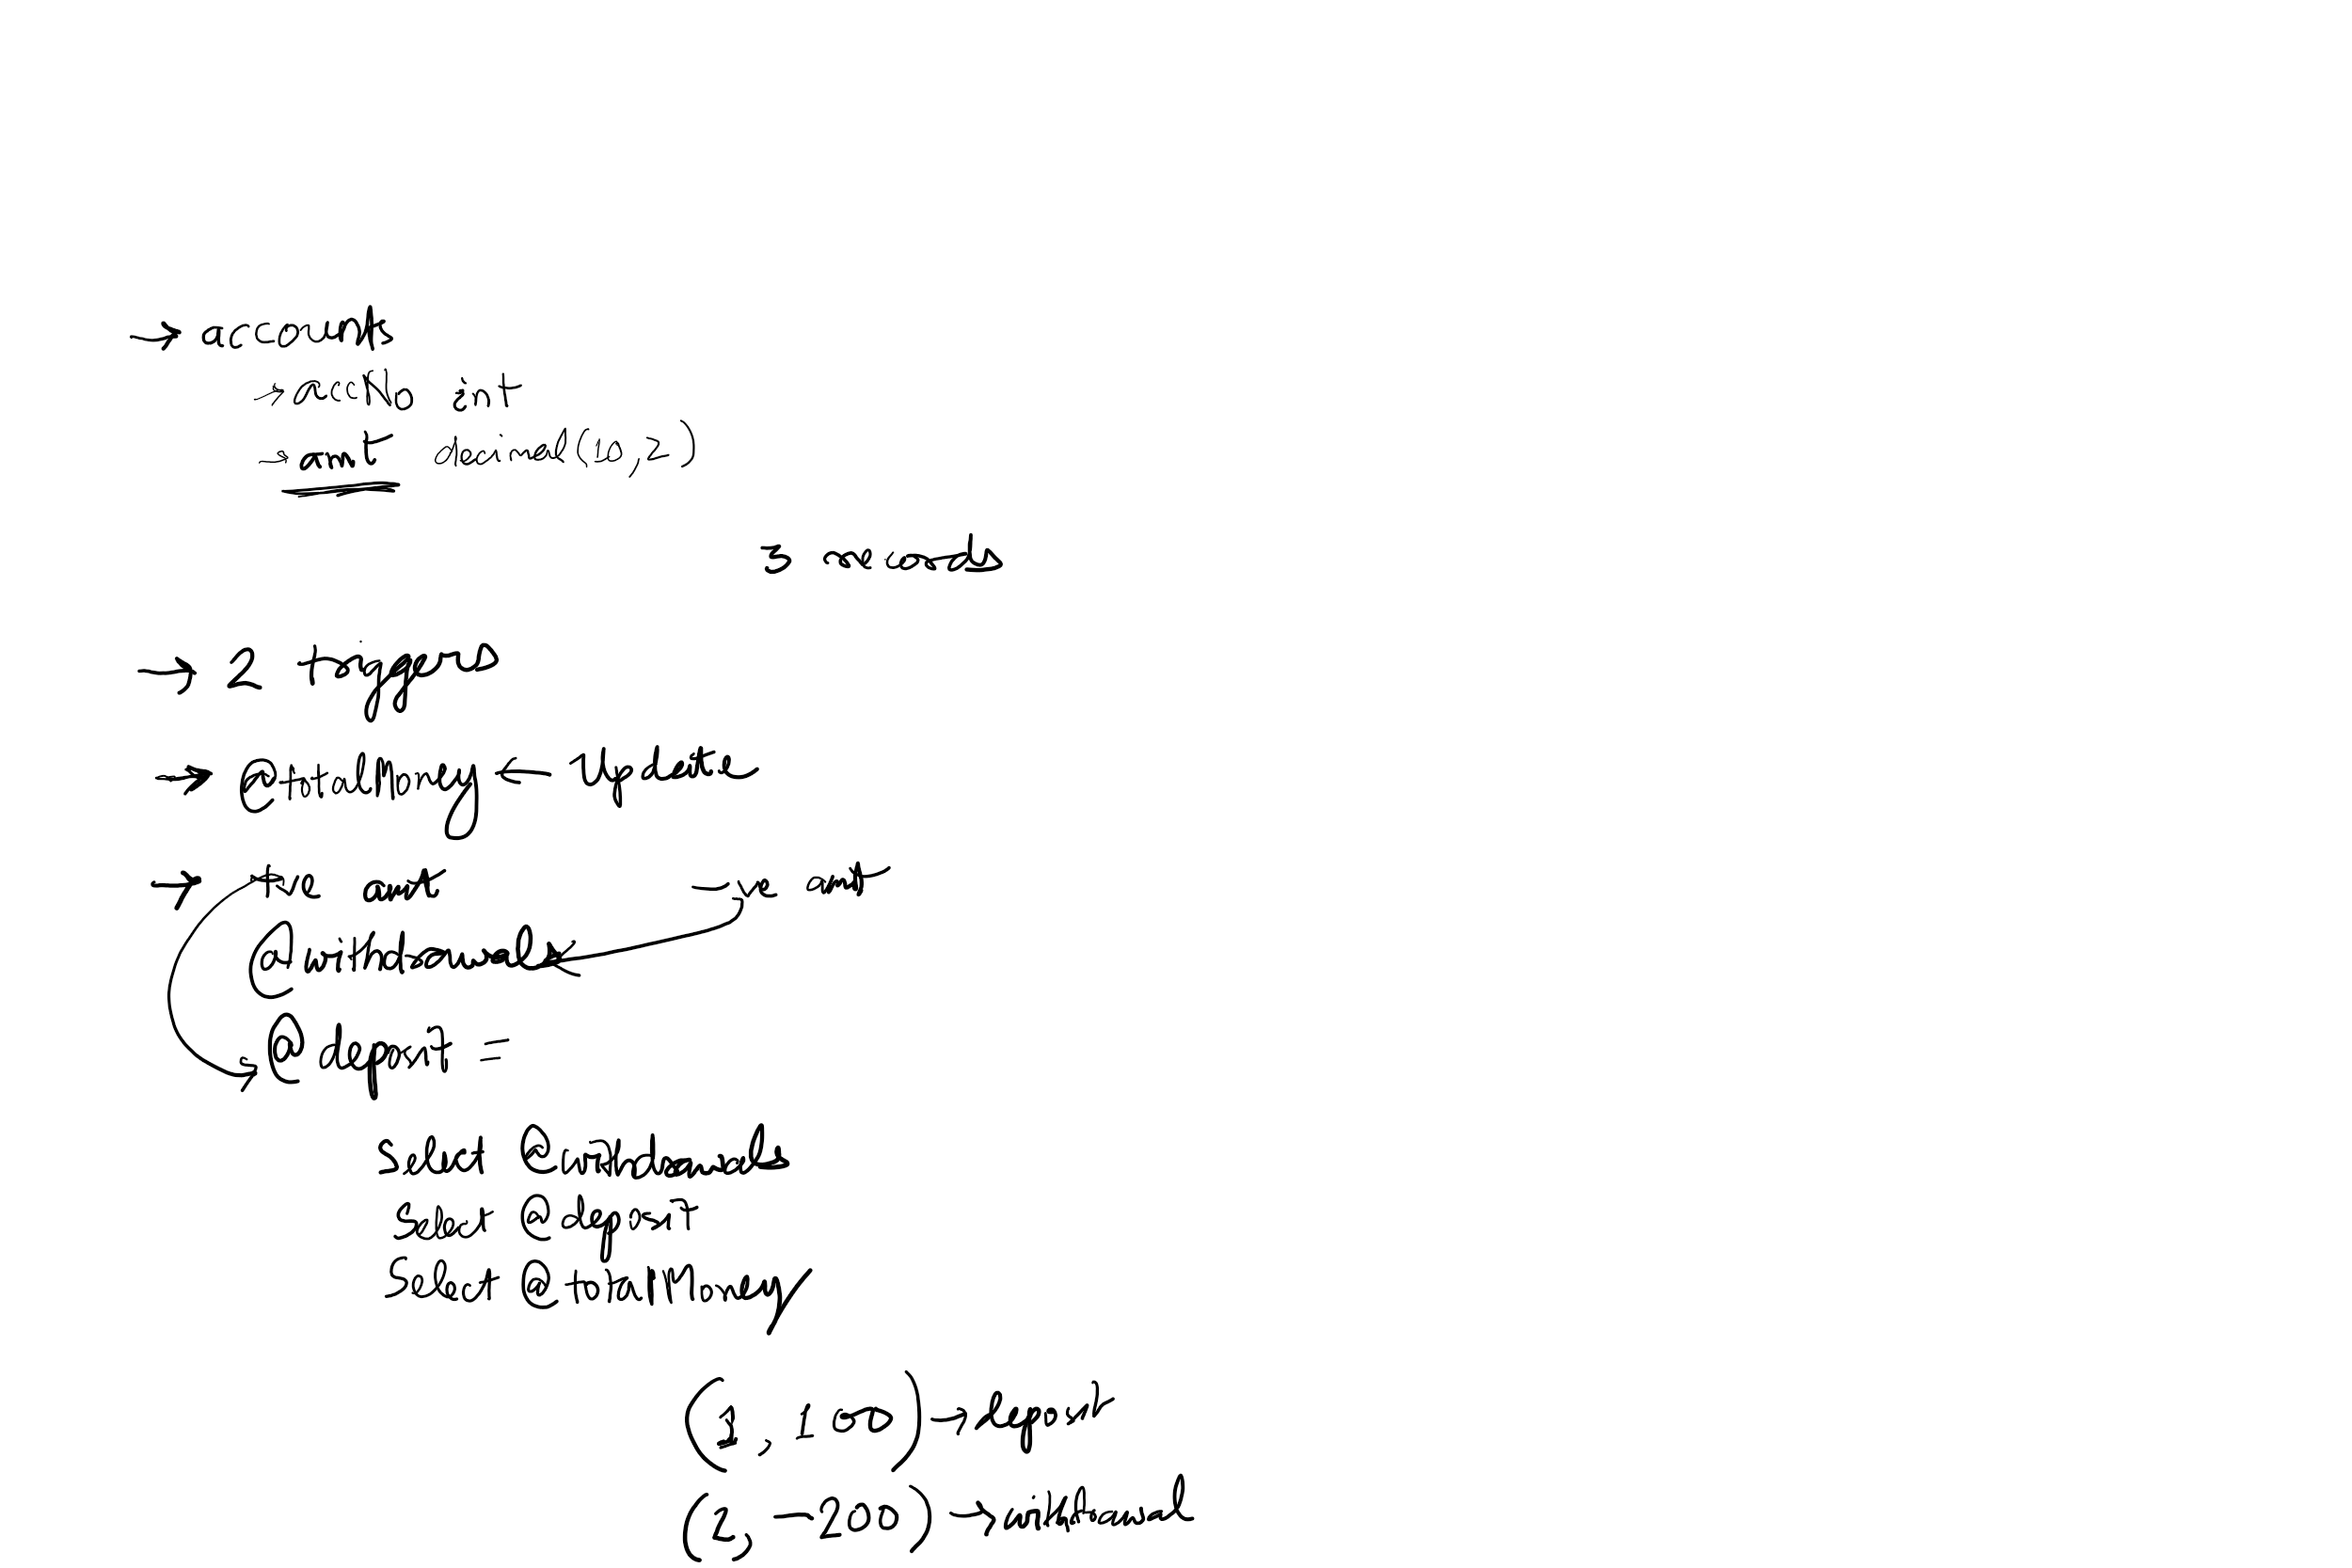 → accounts
→ accNo int
→ amt decimal(10,2)
3 records
→ 2 triggers
→ @totalMoney ← Update
→ +ve amt −ve amt
@withdrawals
@deposit =
Select @withdrawals
Select @deposit
Select @totalMoney
(1, 100) → deposit
(2, −200) → withdrawal